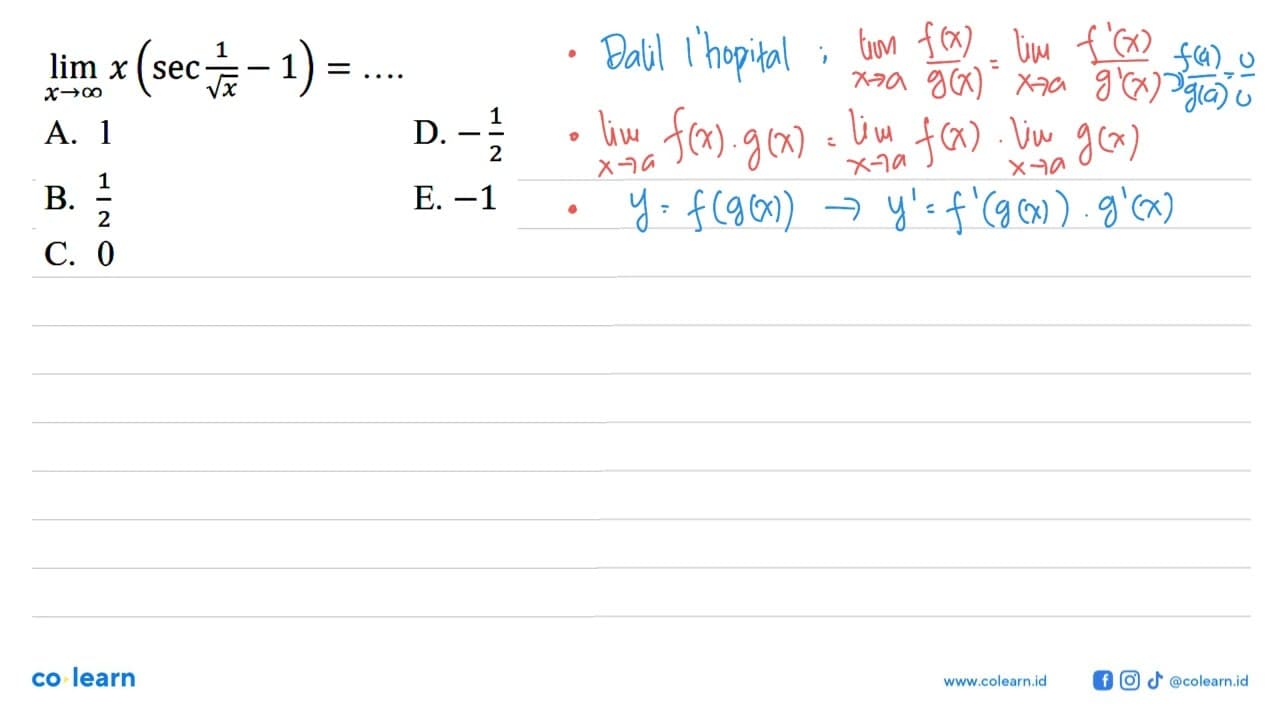 lim x→∞ x (sec 1/√x − 1) = ....
A. 1
B. 1/2
C. 0
D. −1/2
E. −1
• Dalil l'hopital ; lim x→a f(x)/g(x) = lim x→a f'(x)/g'(x) → f(a)/g(a) = 0/0
• lim x→a f(x) . g(x) = lim x→a f(x) . lim x→a g(x)
• y = f(g(x)) → y' = f'(g(x)) . g'(x)
co learn
www.colearn.id
@colearn.id